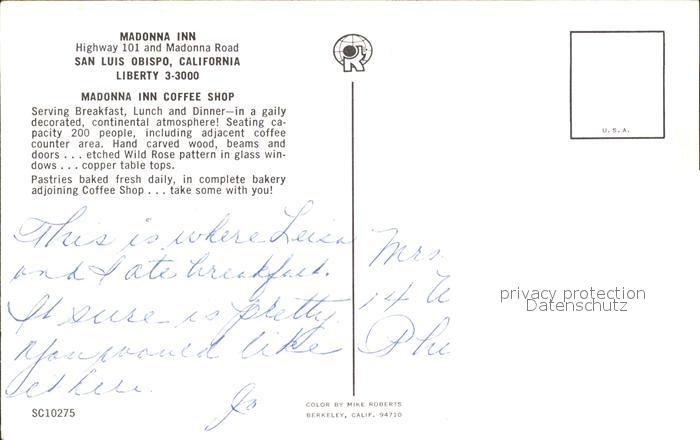 MADONNA INN
Highway 101 and Madonna Road
SAN LUIS OBISPO, CALIFORNIA
LIBERTY 3-3000
MADONNA INN COFFEE SHOP
Serving Breakfast, Lunch and Dinner—in a gaily
decorated, continental atmosphere! Seating ca-
pacity 200 people, including adjacent coffee
counter area. Hand carved wood, beams and
doors . . . etched Wild Rose pattern in glass win-
dows . . . copper table tops.
Pastries baked fresh daily, in complete bakery
adjoining Coffee Shop . . . take some with you!
This is where Leisa
and I ate breakfast.
It sure is pretty.
You would like
it here.
Jo
SC10275
U.S.A.
Mrs.
14
privacy protection
Datenschutz
COLOR BY MIKE ROBERTS
BERKELEY, CALIF. 94710